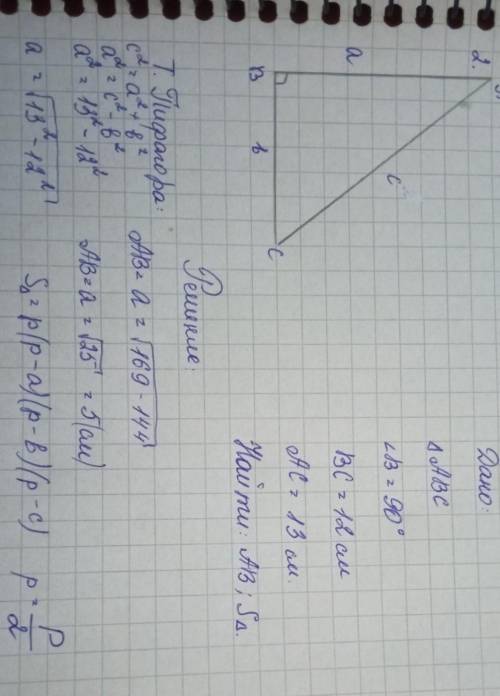 2.
a
B
в
C
c
Дано:
Δ ABC
∠B = 90°
BC = 12 см
AC = 13 см.
Найти: AB; S∆.
Решение:
Т. Пифагора:
c² = a² + в²
a² = c² - в²
a² = 13² - 12²
a = √13² - 12²
AB = a = √169 - 144
AB = a = √25 = 5 (см)
S∆ = p(p-a)(p-в)(p-c) p = P/2